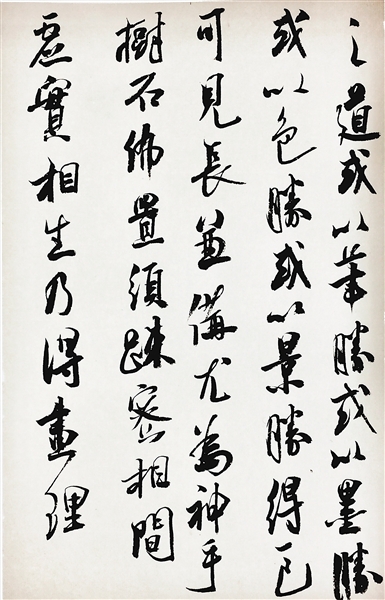 之道或以筆勝或以墨勝
或以色勝或以景勝得已
可見長兼備尤為神手
樹石佈置須疎密相間
虛實相生乃得畫理